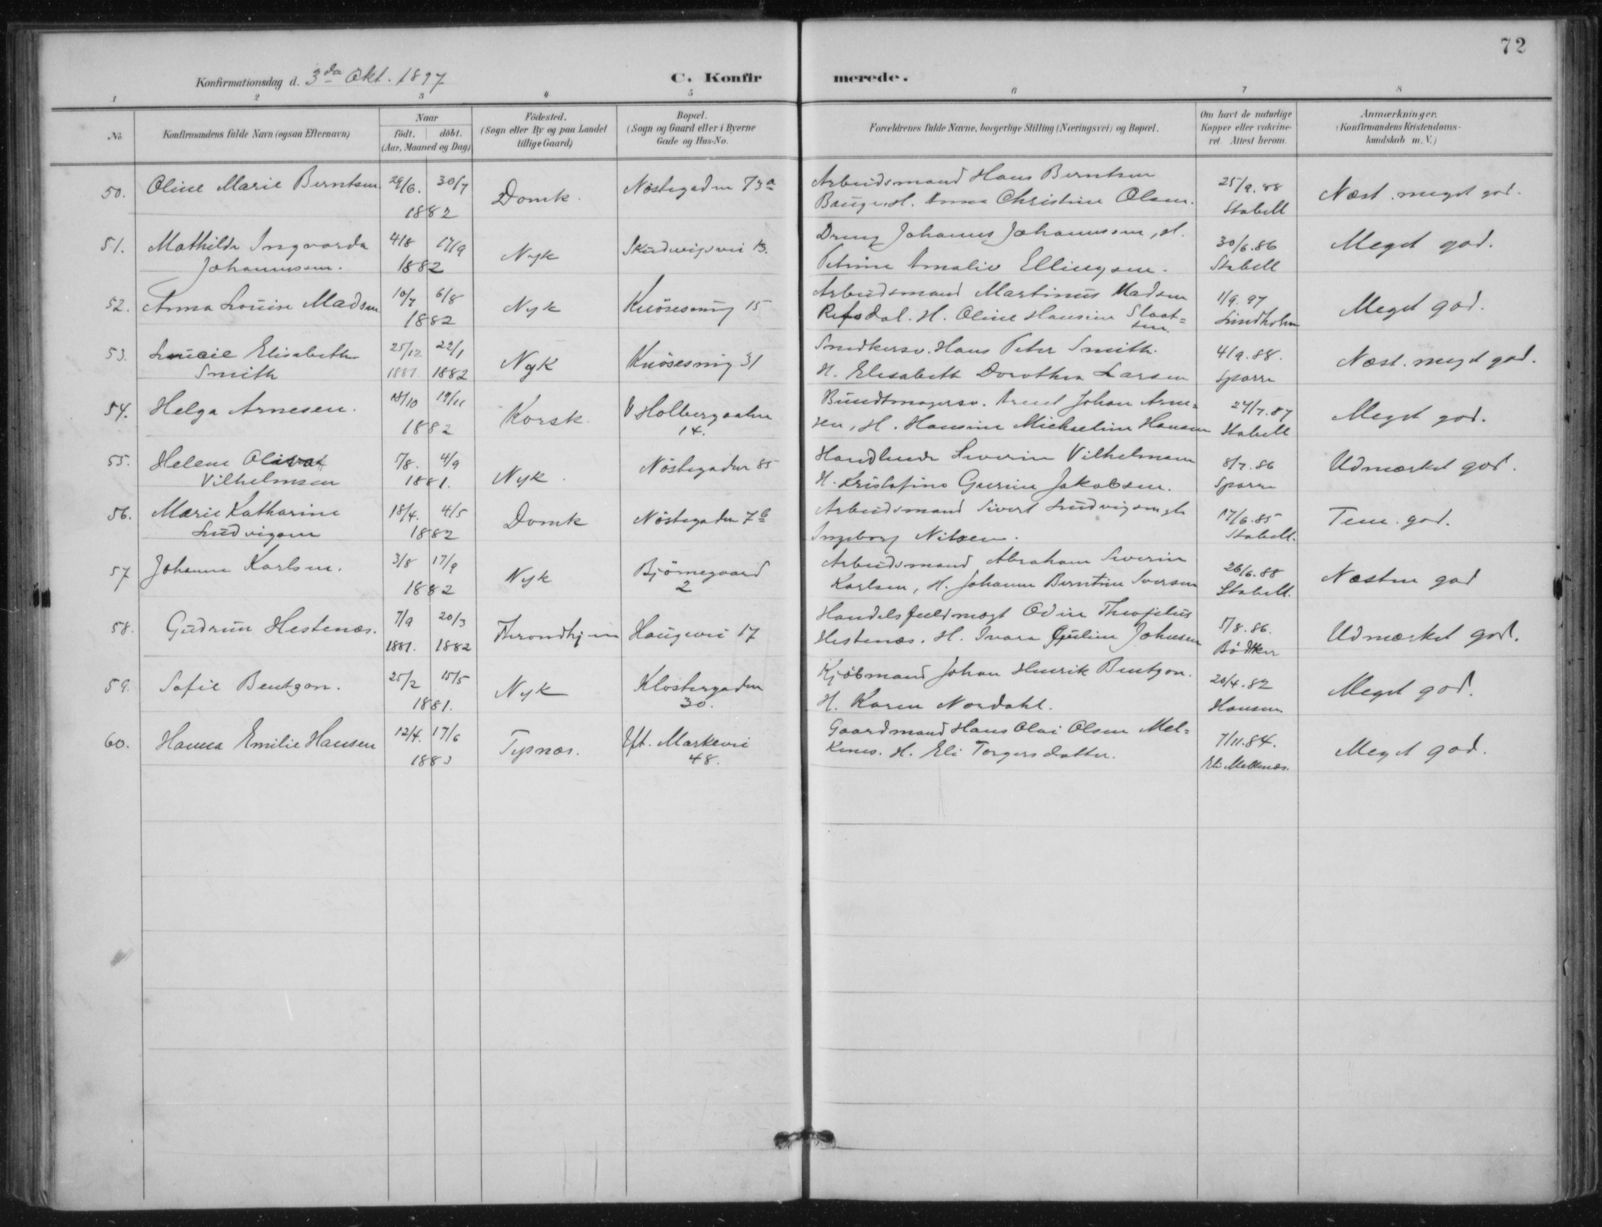 72
Konfirmationsdag d. 3de Okt. 1897
C. Konfirmerede.
1 2 3 4 5 6 7 8
No. Konfirmandens fulde Navn (ogsaa Efternavn) Naar født. døbt. (Aar, Maaned og Dag) Fødested. (Sogn eller By og paa Landet tillige Gaard) Bopæl. (Sogn og Gaard eller i Byerne Gade og Hus-No. Forældrenes fulde Navne, borgerlige Stilling (Næringsvei) og Bopæl. Om havt de naturlige Kopper eller vakcineret. Attest herom. Anmærkninger. (Konfirmandens Kristendomskundskab m. V.)
50. Oline Marie Berntsen 28/6. 30/7 1882 Domk. Nøstegaden 73a Arbeidsmand Hans Berntsen
H. Anna Christine Olsen. 25/9.88 Stabell Næst. meget god.
51. Mathilde Ingvarda 4/8 17/9 1882 Nyk Skudevigsvei 13. Johannes Johannessen, H.
Johannessen. Petrine Amalie Ellingsen. 30/6.86 Stabell Meget god.
52. Anna Louise Madsen 10/7 6/8 1882 Nyk Knøsesmug 15 Arbeidsmand Martinus Madsen
Refsdal. H. Oline Hansine 1/9.97 Lindholm Meget god.
53. Lucie Elisabeth 25/12 22/1 1881 1882 Nyk Knøsesmug 31 Snedkersv. Hans Peter Smith.
Smith H. Elisabeth Dorothea Larsen 4/9.88. Sparre Næst. meget god.
54. Helga Arnesen. 18/10 19/11 1882 Korsk. V Holbergsalm. 14. Bundtmagersv. Arent Johan Arnesen, H. Hansine Michseline Hansen 27/7.87 Stabell Meget god.
55. Helene Olava 5/8. 4/9 1881. Nyk. Nøstegaden 85 Handlende Severin Vilhelmsen
Vilhelmsen H. Kristofine Gurine Jakobsen. 8/7.86 Sparre Udmærket god.
56. Marie Katharine 18/4. 4/5 1882 Domk Nøstegaden 7b Arbeidsmand Sivert Ludvigsen
Ludvigsen Ingeborg Nilsen. 17/6.85 Stabell. Tem. god.
57 Johanne Karlsen. 3/8 17/9 1882 Nyk Bjørnegaard 2 Arbeidsmand Abraham Severin
Karlsen, H. Johanne Berntine Iversen 26/6.88 Stabell. Næsten god
58. Gudrun Hestenæs. 7/9 20/3 1881. 1882 Throndhjem Haugevei 17 Handelsfuldmægt Odin Theofilus
Hestenæs. H. Ivara Guline Johnsen 5/8.86. Bødtker Udmærket god.
59. Sofie Bentzon. 25/2 15/5 1881. Nyk Klostergaden 30. Kjøbmand Johan Henrik Bentzon.
H. Karen Nordahl. 20/4.82 Hansen Meget god.
60. Hanna Emilie Hansen 12/4. 17/6 1883 Tysnæs. Yt. Markevei 48. Gaardmand Hans Olai Olsen Melkenes. H. Eli Torgersdatter. 7/11.84. Eli Melkenæs. Meget god.